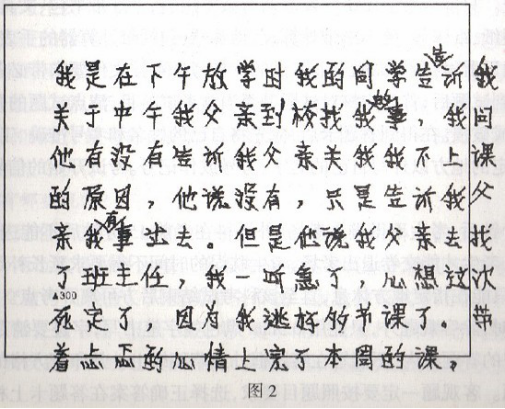 我是在下午放学时我的同学告诉我
关于中午我父亲到校找我事，我问
他有没有告诉我父亲关我我不上课
的原因，他说没有，只是告诉我父
亲我有事逃去。但是他说我父亲去找
了班主任，我一听急了，心想这次
▲300
死定了，因为我逃好的书课了。带
着点点的心情上完了本周的课。
图 2